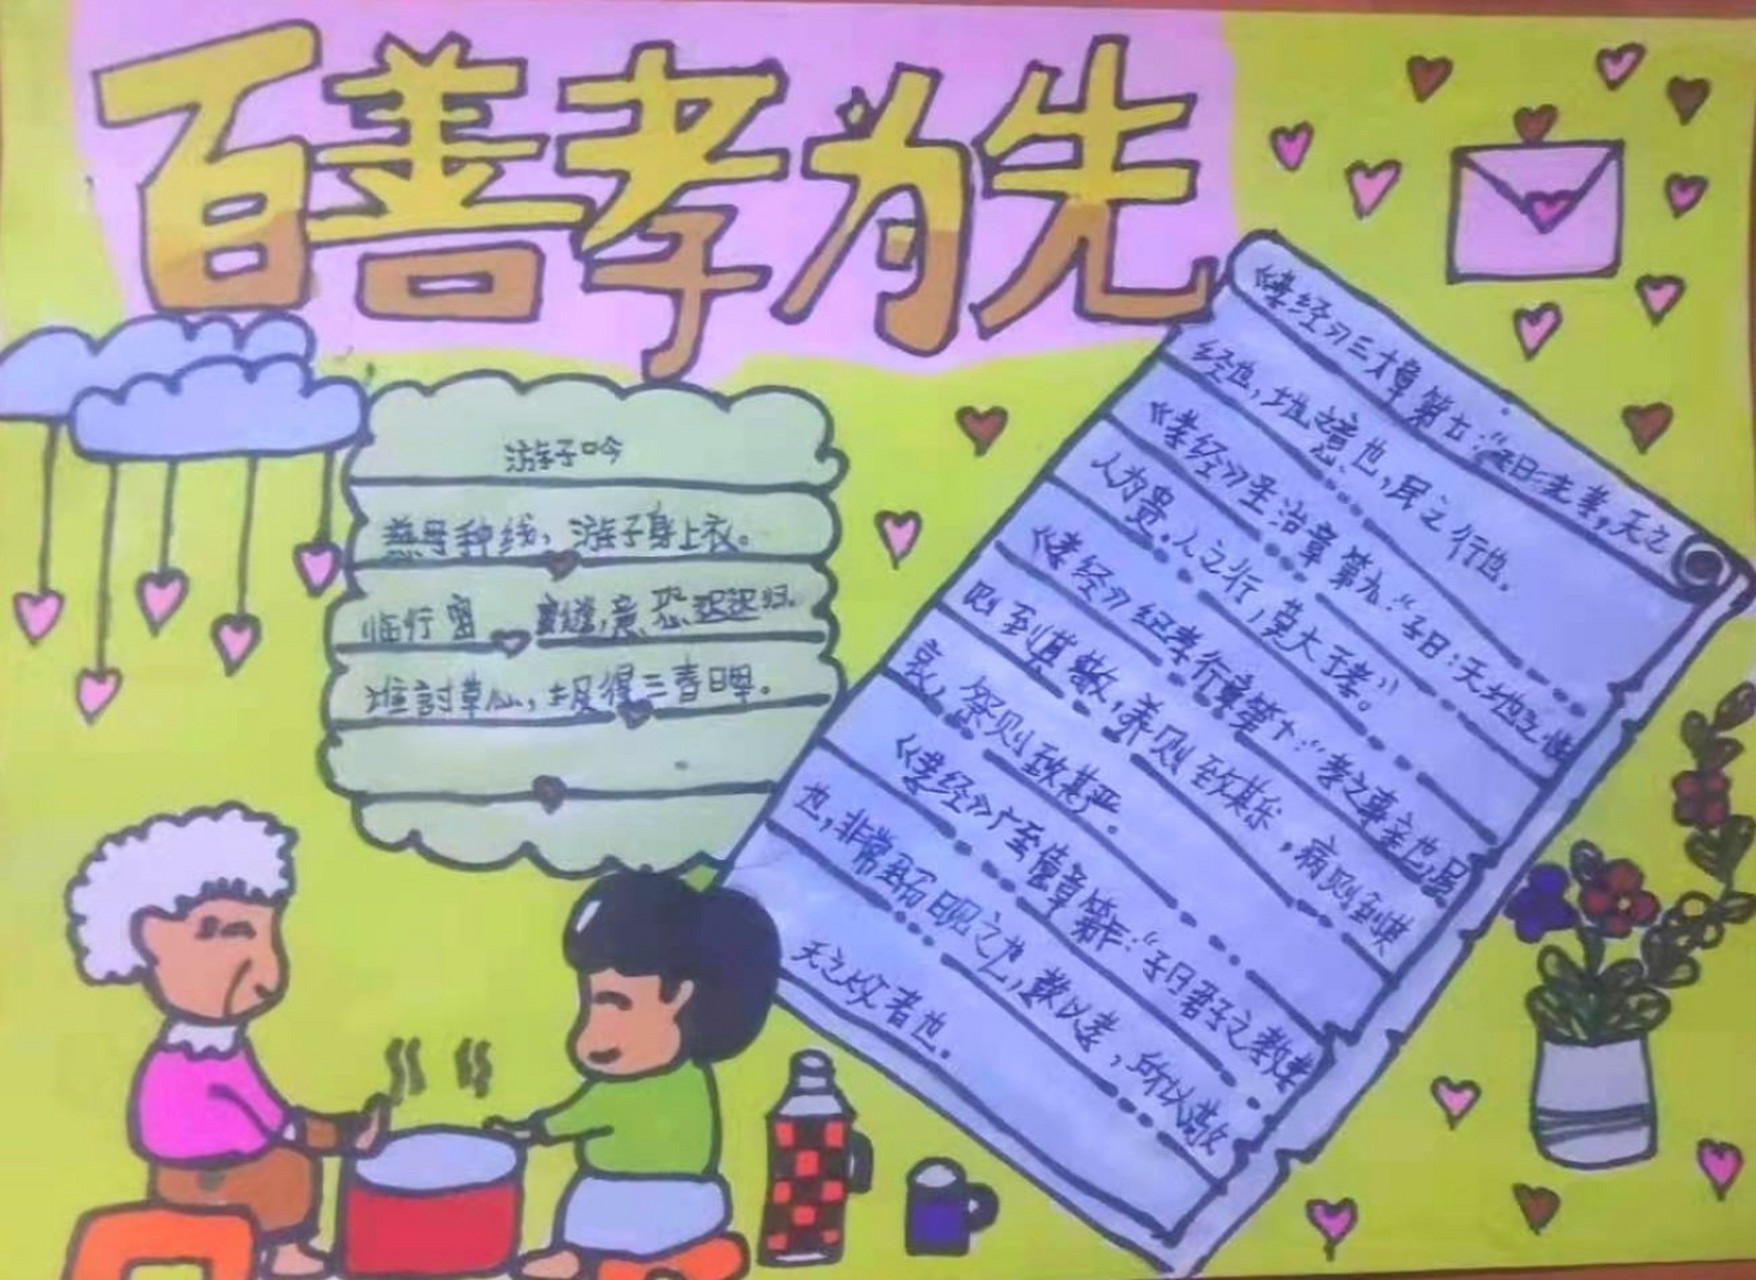 百善孝为先
游子吟
慈母手中线，游子身上衣。
临行密 密缝，意恐迟迟归。
谁討草心，报得三春晖。
《孝经》三才章第七：“子曰：先孝，天之
经也，地之意也，民之行也。
《孝经》圣治章第九：“子曰：天地之性
人为贵。人之行，莫大于孝。”
《孝经》纪孝行章第十：“孝之事亲也居
则到其敬，养则致其乐，病则到其
哀，祭则致其严。
《孝经》广至德章第十：“子曰君子之教孝
也，非常而日见之也，教以孝，所以敬
天之父者也。